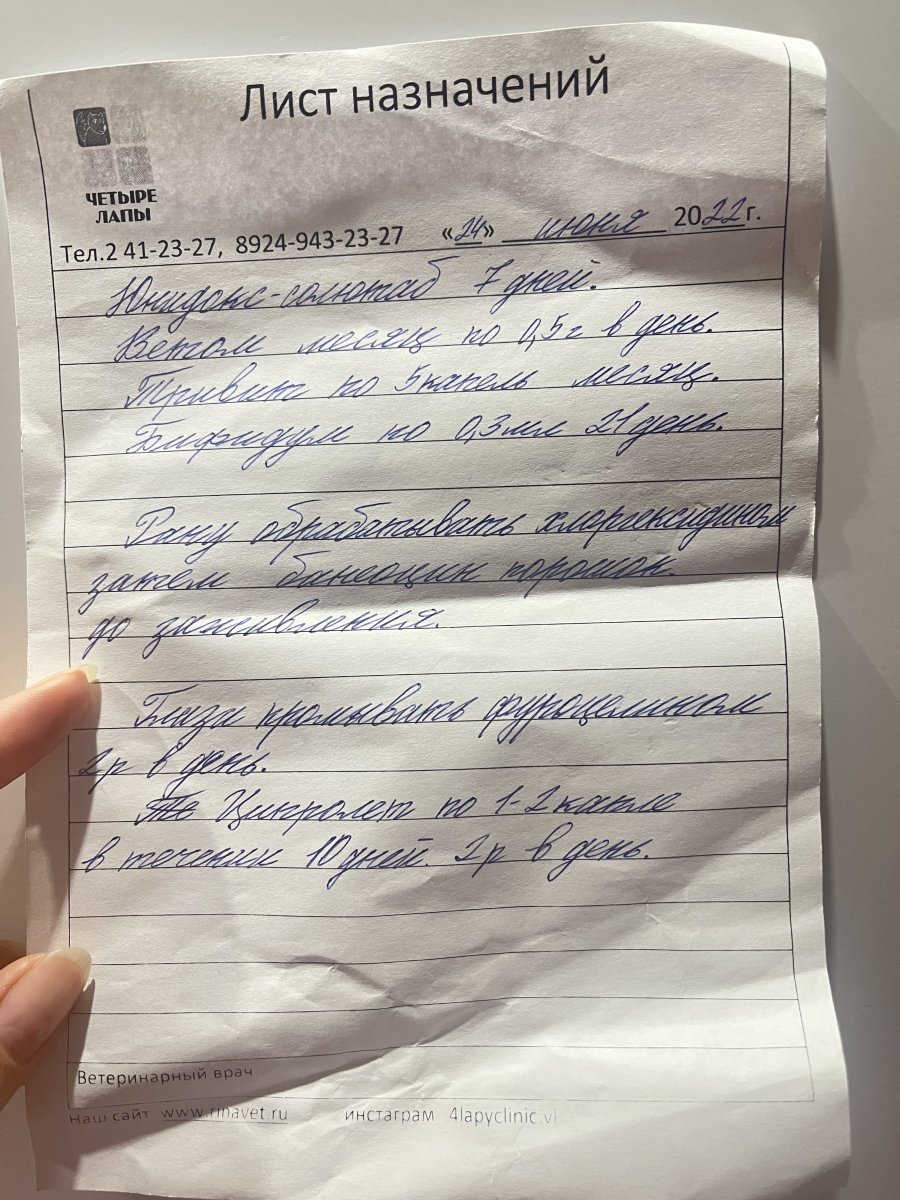 Лист назначений
ЧЕТЫРЕ
ЛАПЫ
Тел.2 41-23-27, 8924-943-23-27 «24» июня 2022г.
Юнидокс-солютаб 7 дней.
Ветом месяц по 0,5г в день.
Тривит по 5 капель месяц.
Бифидум по 0,3 мл 21 день.
Рану обрабатывать хлоргексидином
затем банеоцин порошок.
до заживления.
Глаза промывать фуроцелином
2р в день.
Ципролет по 1-2 капле
в течении 10 дней. 2р в день.
Ветеринарный врач
Наш сайт www.rmavet.ru инстаграм 4lapyclinic.vl